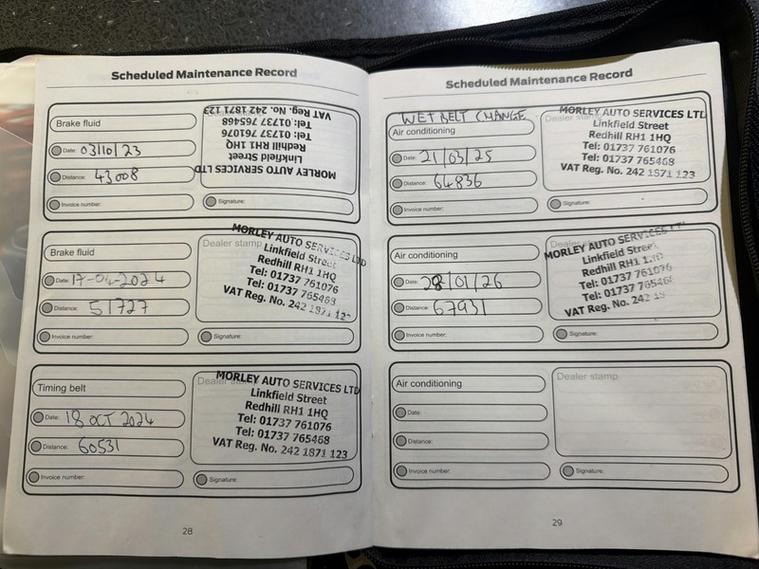 Scheduled Maintenance Record
Brake fluid
Date: 03/10/23
Distance: 43008
Invoice number:
MORLEY AUTO SERVICES LTD
Linkfield Street
Redhill RH1 1HQ
Tel: 01737 761076
Tel: 01737 765468
VAT Reg. No. 242 1871 123
Signature:
Brake fluid
Date: 17-04-2024
Distance: 51727
Invoice number:
Dealer stamp
MORLEY AUTO SERVICES LTD
Linkfield Street
Redhill RH1 1HQ
Tel: 01737 761076
Tel: 01737 765468
VAT Reg. No. 242 1871
Signature:
Timing belt
Date: 18 OCT 2024
Distance: 60531
Invoice number:
Dealer
MORLEY AUTO SERVICES LTD
Linkfield Street
Redhill RH1 1HQ
Tel: 01737 761076
Tel: 01737 765468
VAT Reg. No. 242 1871 123
Signature:
28
Scheduled Maintenance Record
WET BELT CHANGE
Air conditioning
Date: 21/03/25
Distance: 64836
Invoice number:
Dealer
MORLEY AUTO SERVICES LTD
Linkfield Street
Redhill RH1 1HQ
Tel: 01737 761076
Tel: 01737 765468
VAT Reg. No. 242 1871 123
Signature:
Air conditioning
Date: 28/01/26
Distance: 67931
Invoice number:
Dealer
MORLEY AUTO SERVICES LTD
Linkfield
Redhill RH1
Tel: 01737 761076
Tel: 01737
VAT Reg. No. 242
Signature:
Air conditioning
Date:
Distance:
Invoice number:
Dealer stamp
Signature:
29